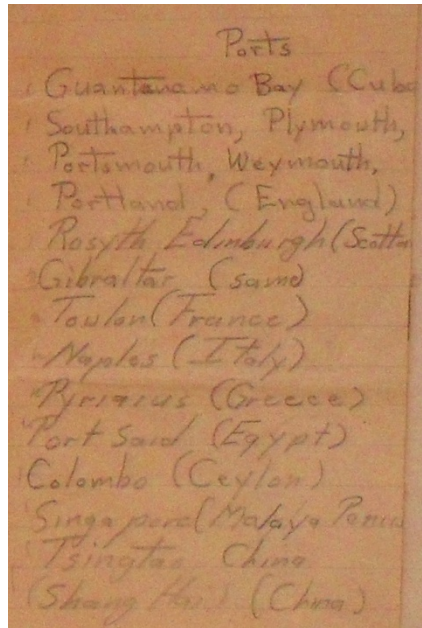 Ports
Guantanamo Bay (Cuba
Southampton, Plymouth,
Portsmouth, Weymouth,
Portland, (England)
Rosyth Edinburgh (Scotla
Gibraltar (same)
Toulon (France)
Naples (Italy)
Pyriaeus (Greece)
Port Said (Egypt)
Colombo (Ceylon)
Singapore (Malaya Penin
Tsingtao China
(Shang Hai) (China)